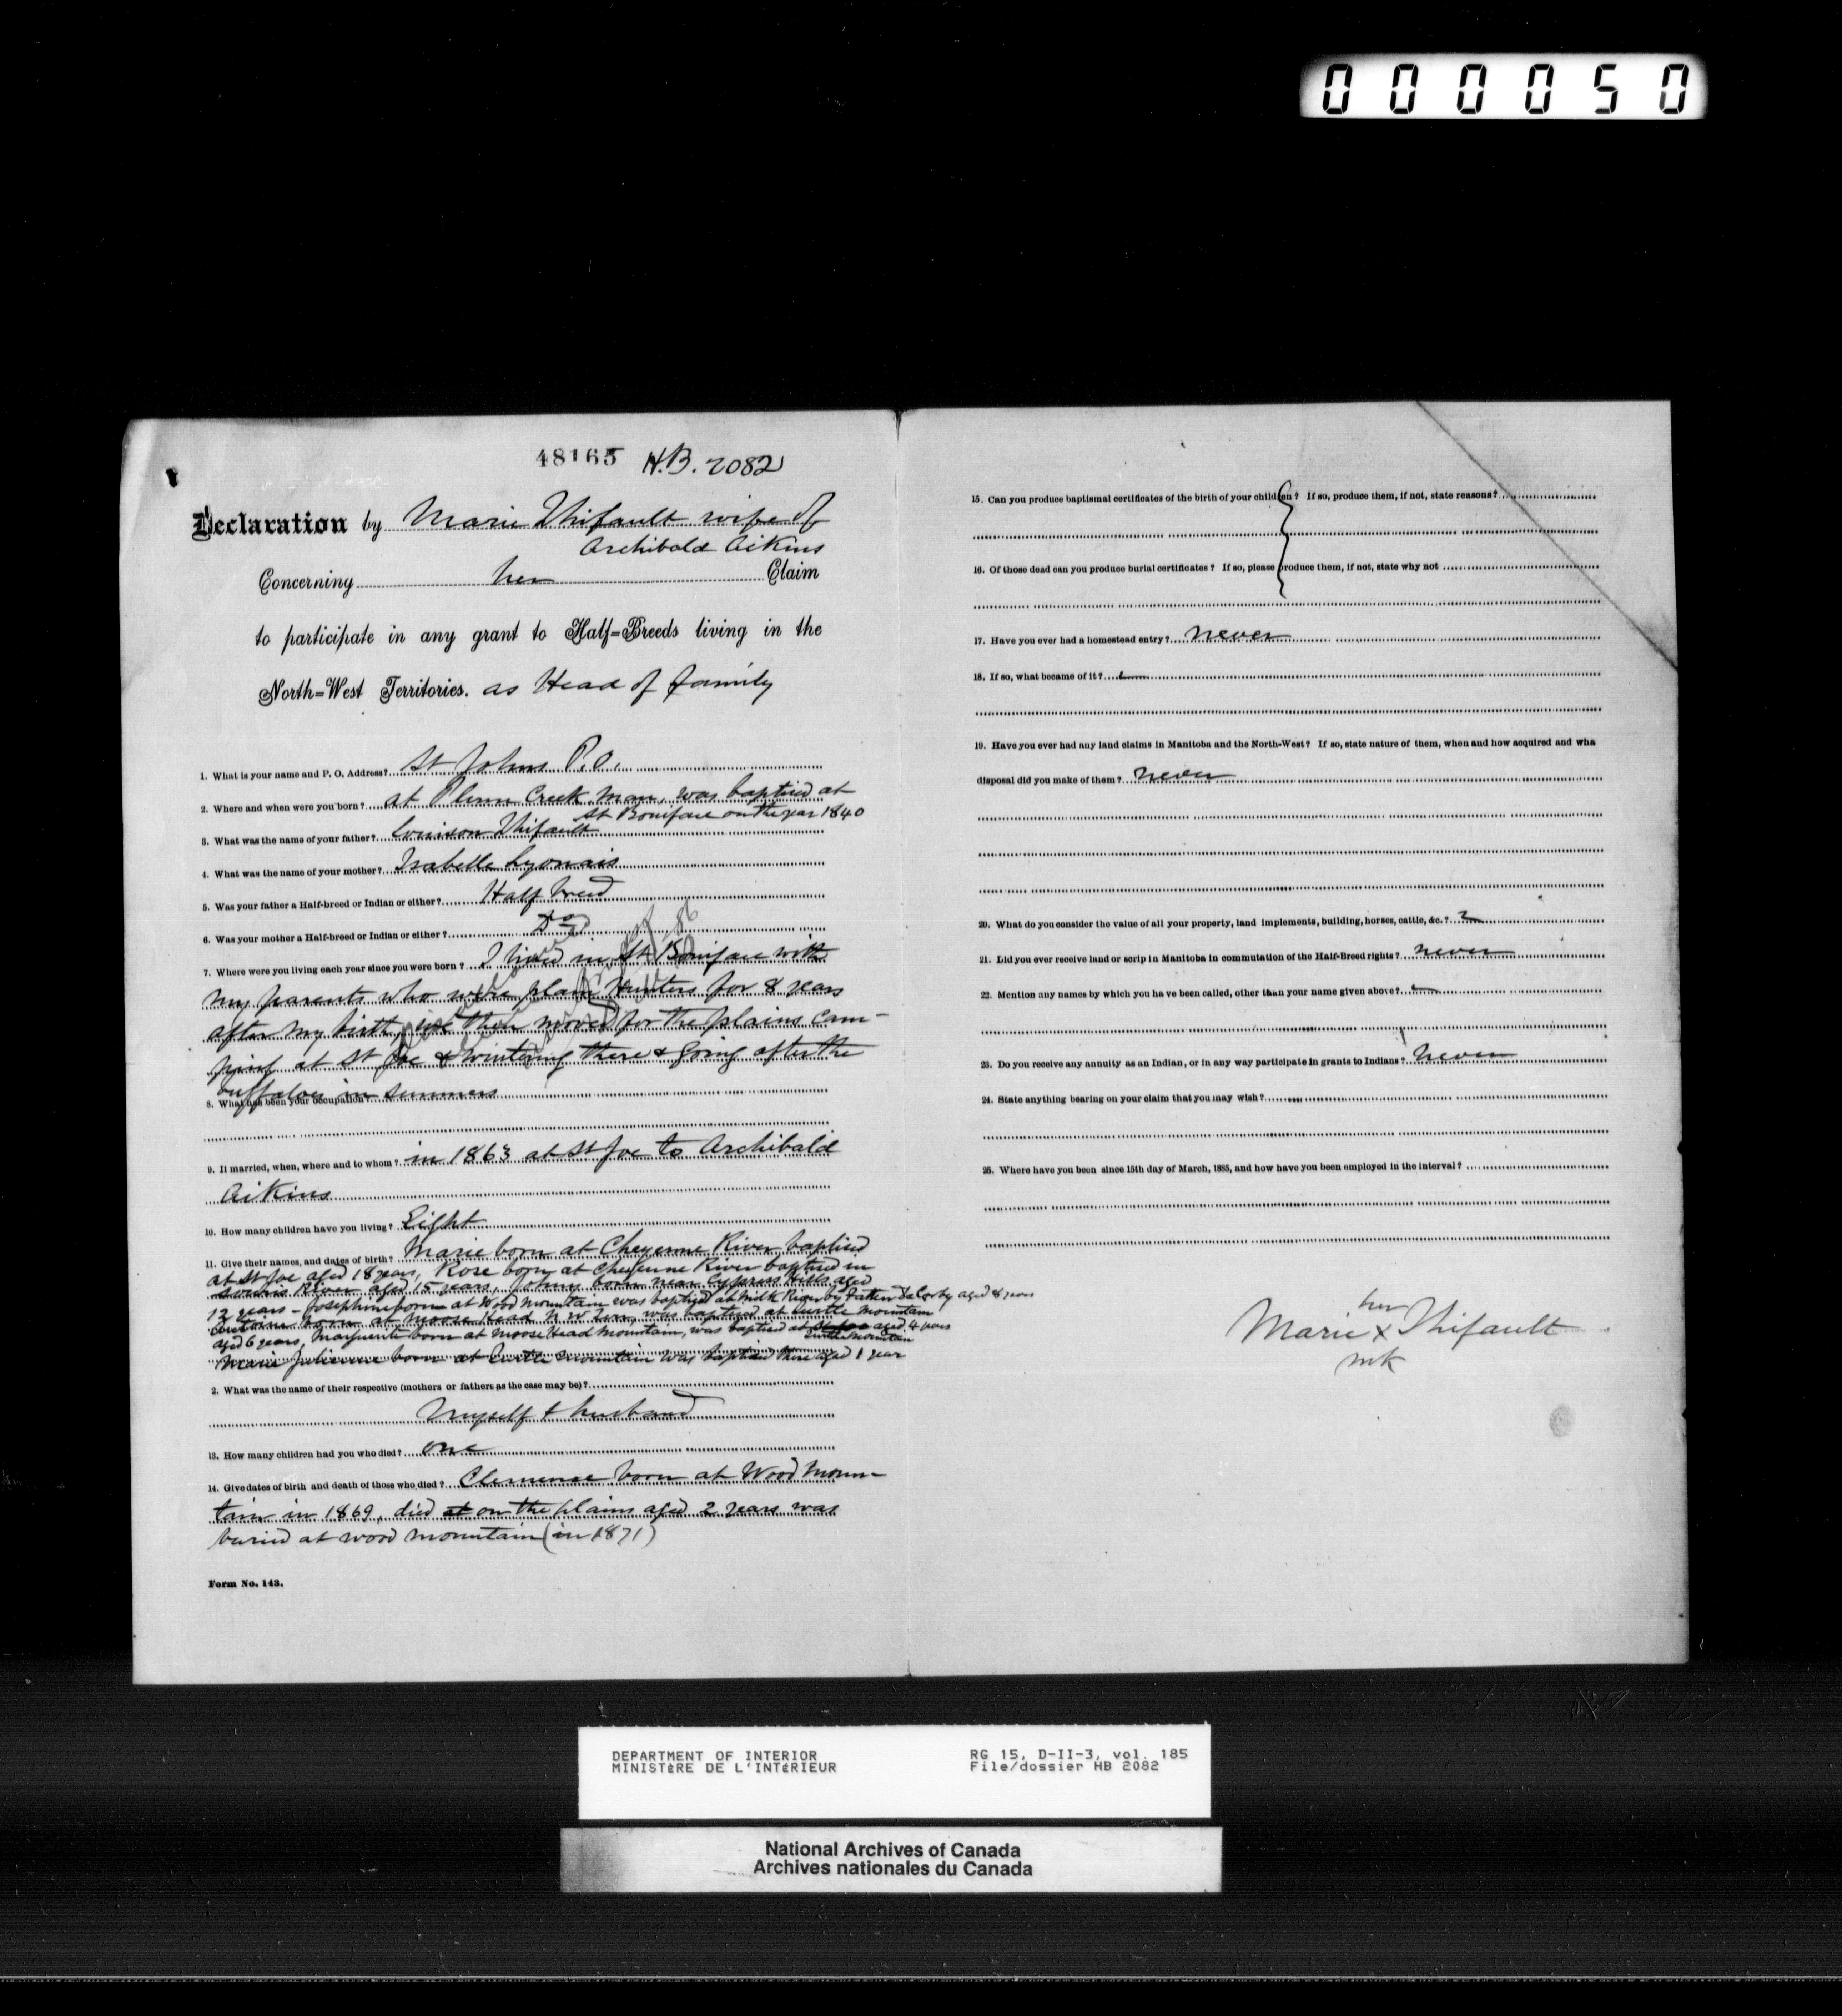 000050
48165 H.B. 2082
Declaration by Marie Thifault wife of
Archibald Aikins
Concerning her Claim
to participate in any grant to Half=Breeds living in the
North=West Territories. as Head of family
1. What is your name and P. O. Address? St Johns P.O.
2. Where and when were you born? at Plum Creek Man, was baptised at
St Boniface on the year 1840
3. What was the name of your father? Louison Thifault
4. What was the name of your mother? Isabelle Lyonnais
5. Was your father a Half-breed or Indian or either? Half breed
6. Was your mother a Half-breed or Indian or either? Do
7. Where were you living each year since you were born? I lived in St Boniface with
my parents who were plain Hunters for 8 years
after my birth, we then moved for the plains cam-
ping at St Joe & wintering there & going after the
buffaloes in summers
8. What has been your occupation?
9. If married, when, where and to whom? in 1863 at St Joe to Archibald
Aikins
10. How many children have you living? Eight
11. Give their names, and dates of birth? Marie born at Cheyenne River baptised
at St Joe aged 18 years, Rose born at Cheyenne River baptised in
Souris River aged 15 years, Johny born near Cypress Hills aged
12 years - Josephine born at Wood Mountain was baptised at Milk River by Father aged 8 years
born at Moose Head N W Terr, was baptised at Turtle Mountain
aged 6 years, Marguerite born at Moose Head Mountain, was baptised at aged 4 years
Turtle Mountain
Marie Julienne born at Turtle Mountain was baptised there aged 1 year
2. What was the name of their respective (mothers or fathers as the case may be)?
Myself & husband
13. How many children had you who died? one
14. Give dates of birth and death of those who died? Clemence born at Wood Moun-
tain in 1869, died at on the plains aged 2 years was
buried at wood mountain (in 1871)
Form No. 143.
15. Can you produce baptismal certificates of the birth of your children? If so, produce them, if not, state reasons?
16. Of those dead can you produce burial certificates? If so, please produce them, if not, state why not
17. Have you ever had a homestead entry? never
18. If so, what became of it?
19. Have you ever had any land claims in Manitoba and the North-West? If so, state nature of them, when and how acquired and wha
disposal did you make of them? never
20. What do you consider the value of all your property, land implements, building, horses, cattle, &c.?
21. Did you ever receive land or scrip in Manitoba in commutation of the Half-Breed rights? never
22. Mention any names by which you have been called, other than your name given above?
23. Do you receive any annuity as an Indian, or in any way participate in grants to Indians? never
24. State anything bearing on your claim that you may wish?
25. Where have you been since 15th day of March, 1885, and how have you been employed in the interval?
her
Marie x Thifault
mk
DEPARTMENT OF INTERIOR
MINISTÈRE DE L'INTÉRIEUR
RG 15, D-II-3, vol. 185
File/dossier HB 2082
National Archives of Canada
Archives nationales du Canada